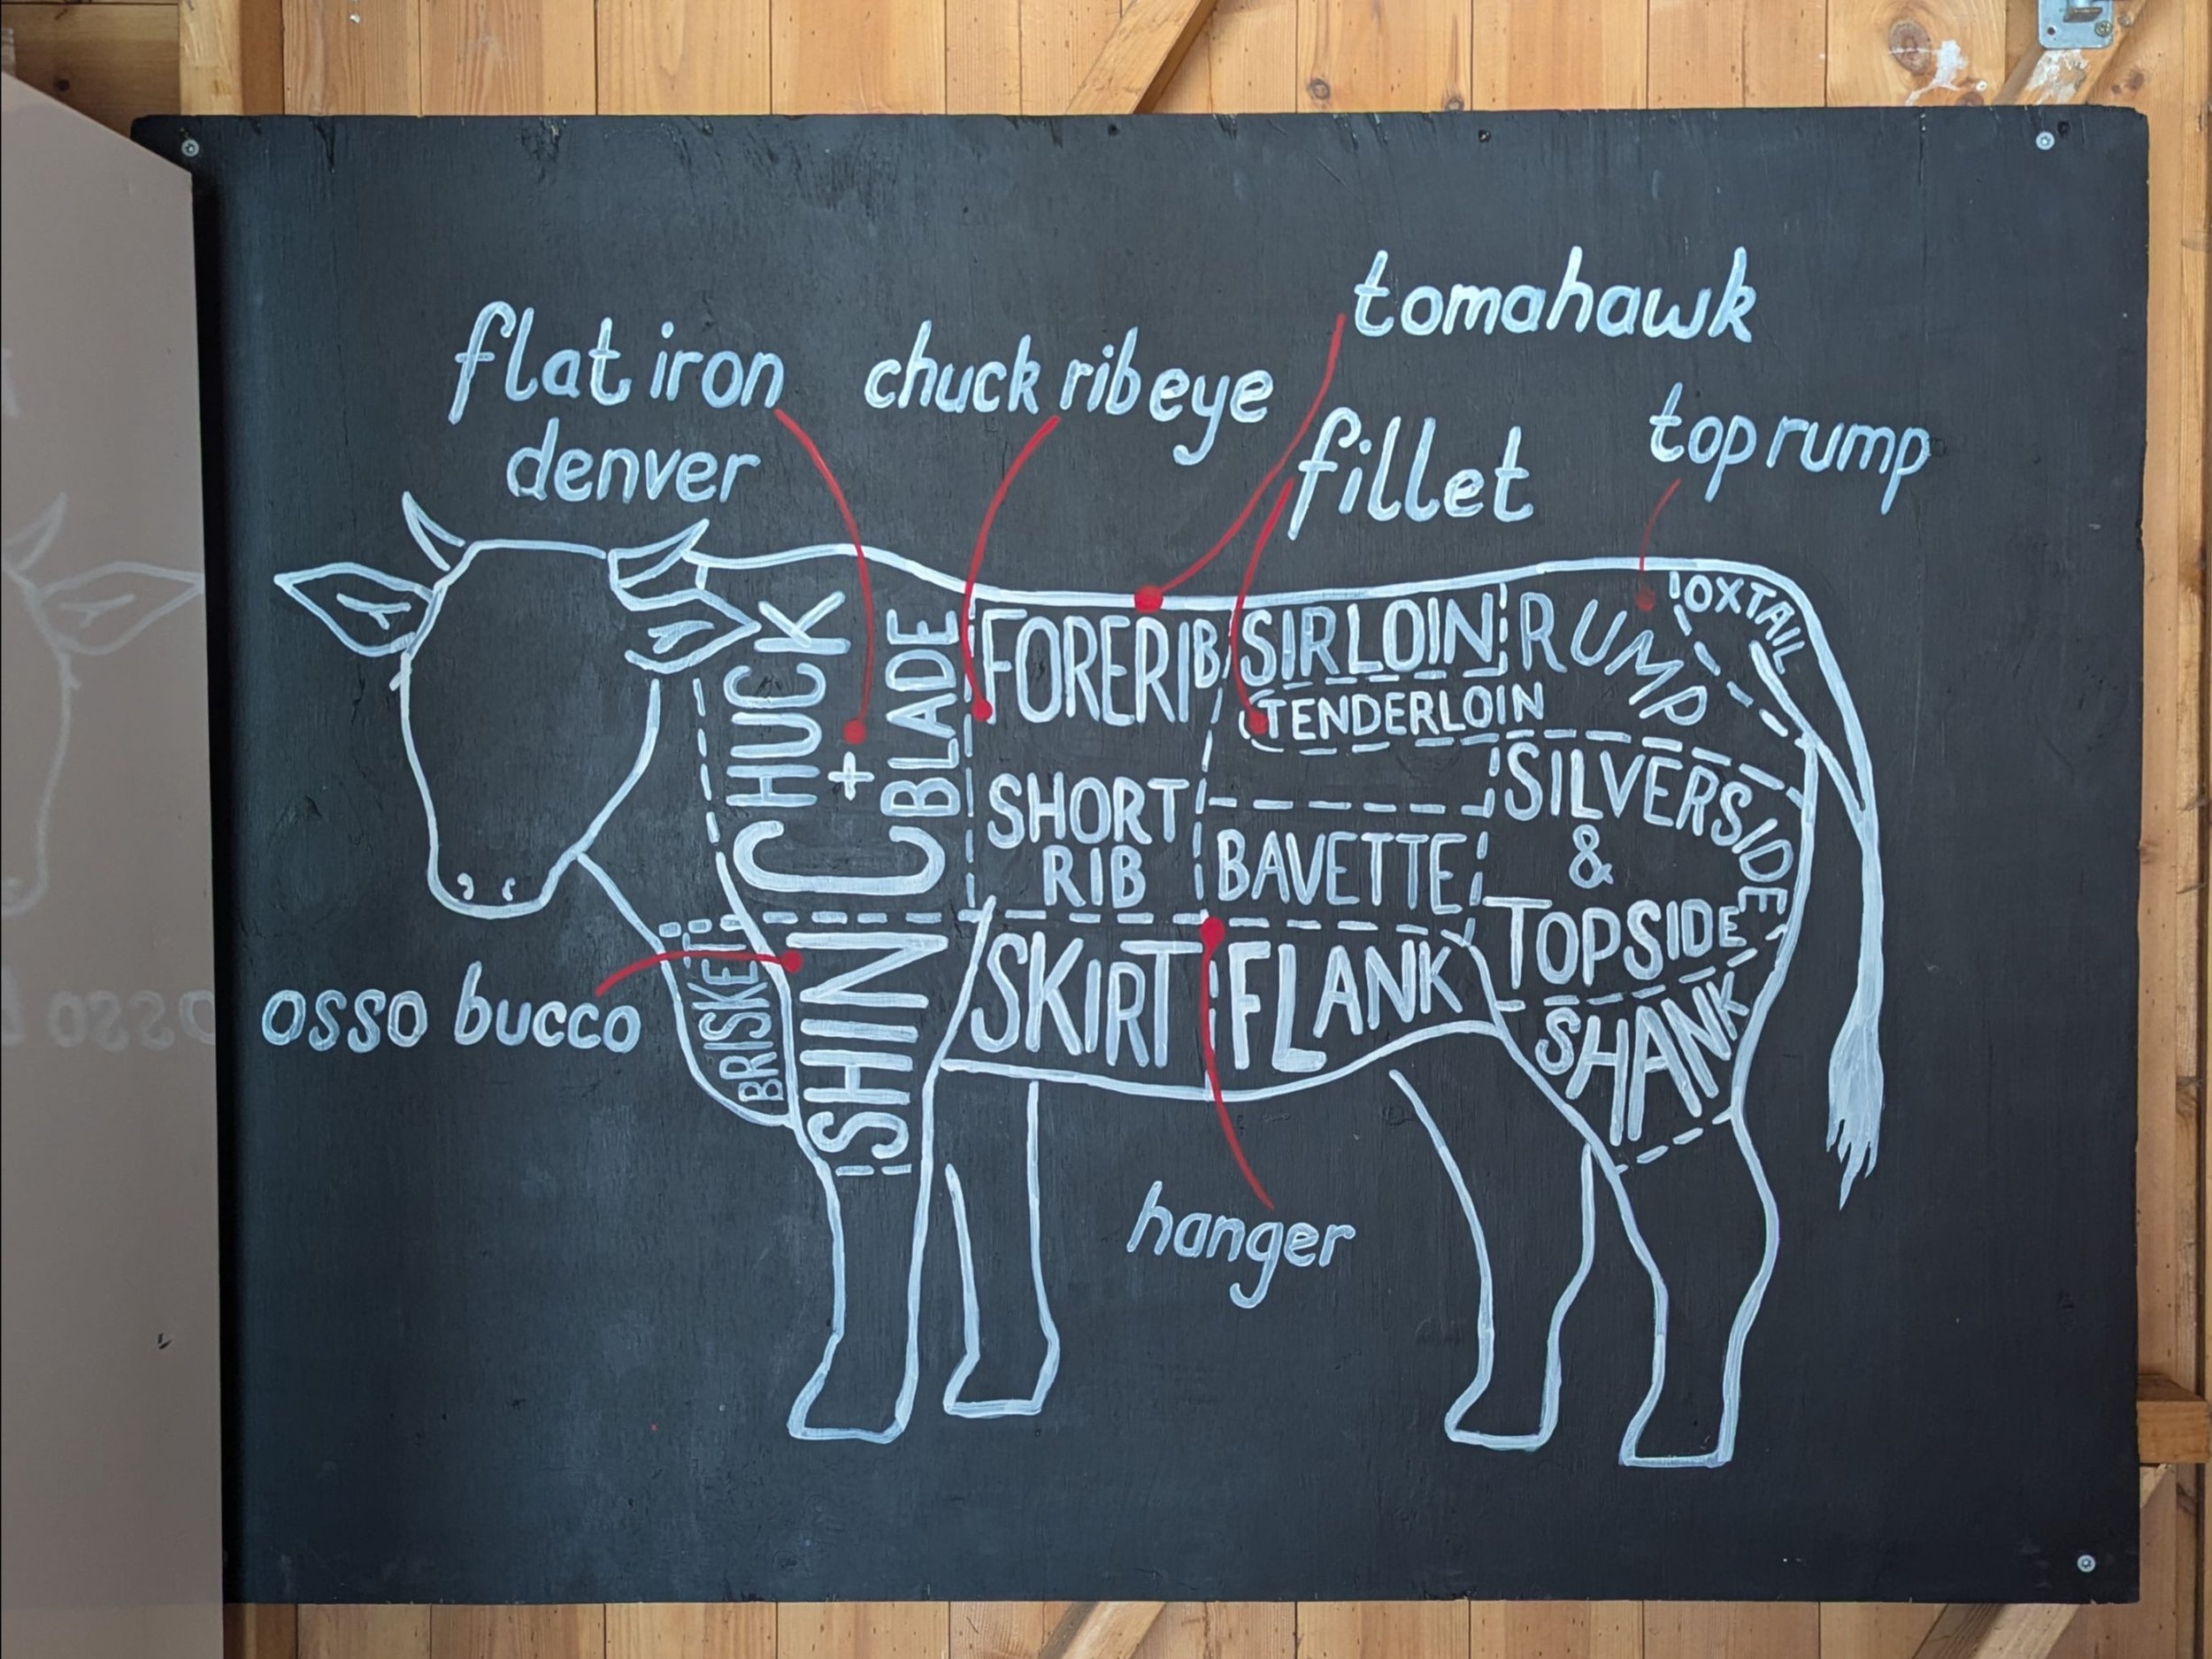 tomahawk
flat iron
chuck rib eye
denver
fillet
top rump
CHUCK
+
CBLADE
FORERIB
SIRLOIN
RUMP
OXTAIL
TENDERLOIN
SHORT
RIB
BAVETTE
SILVERSIDE
&
TOPSIDE
osso bucco
BRISKET
SHIN
SKIRT
FLANK
SHANK
hanger
OSSO